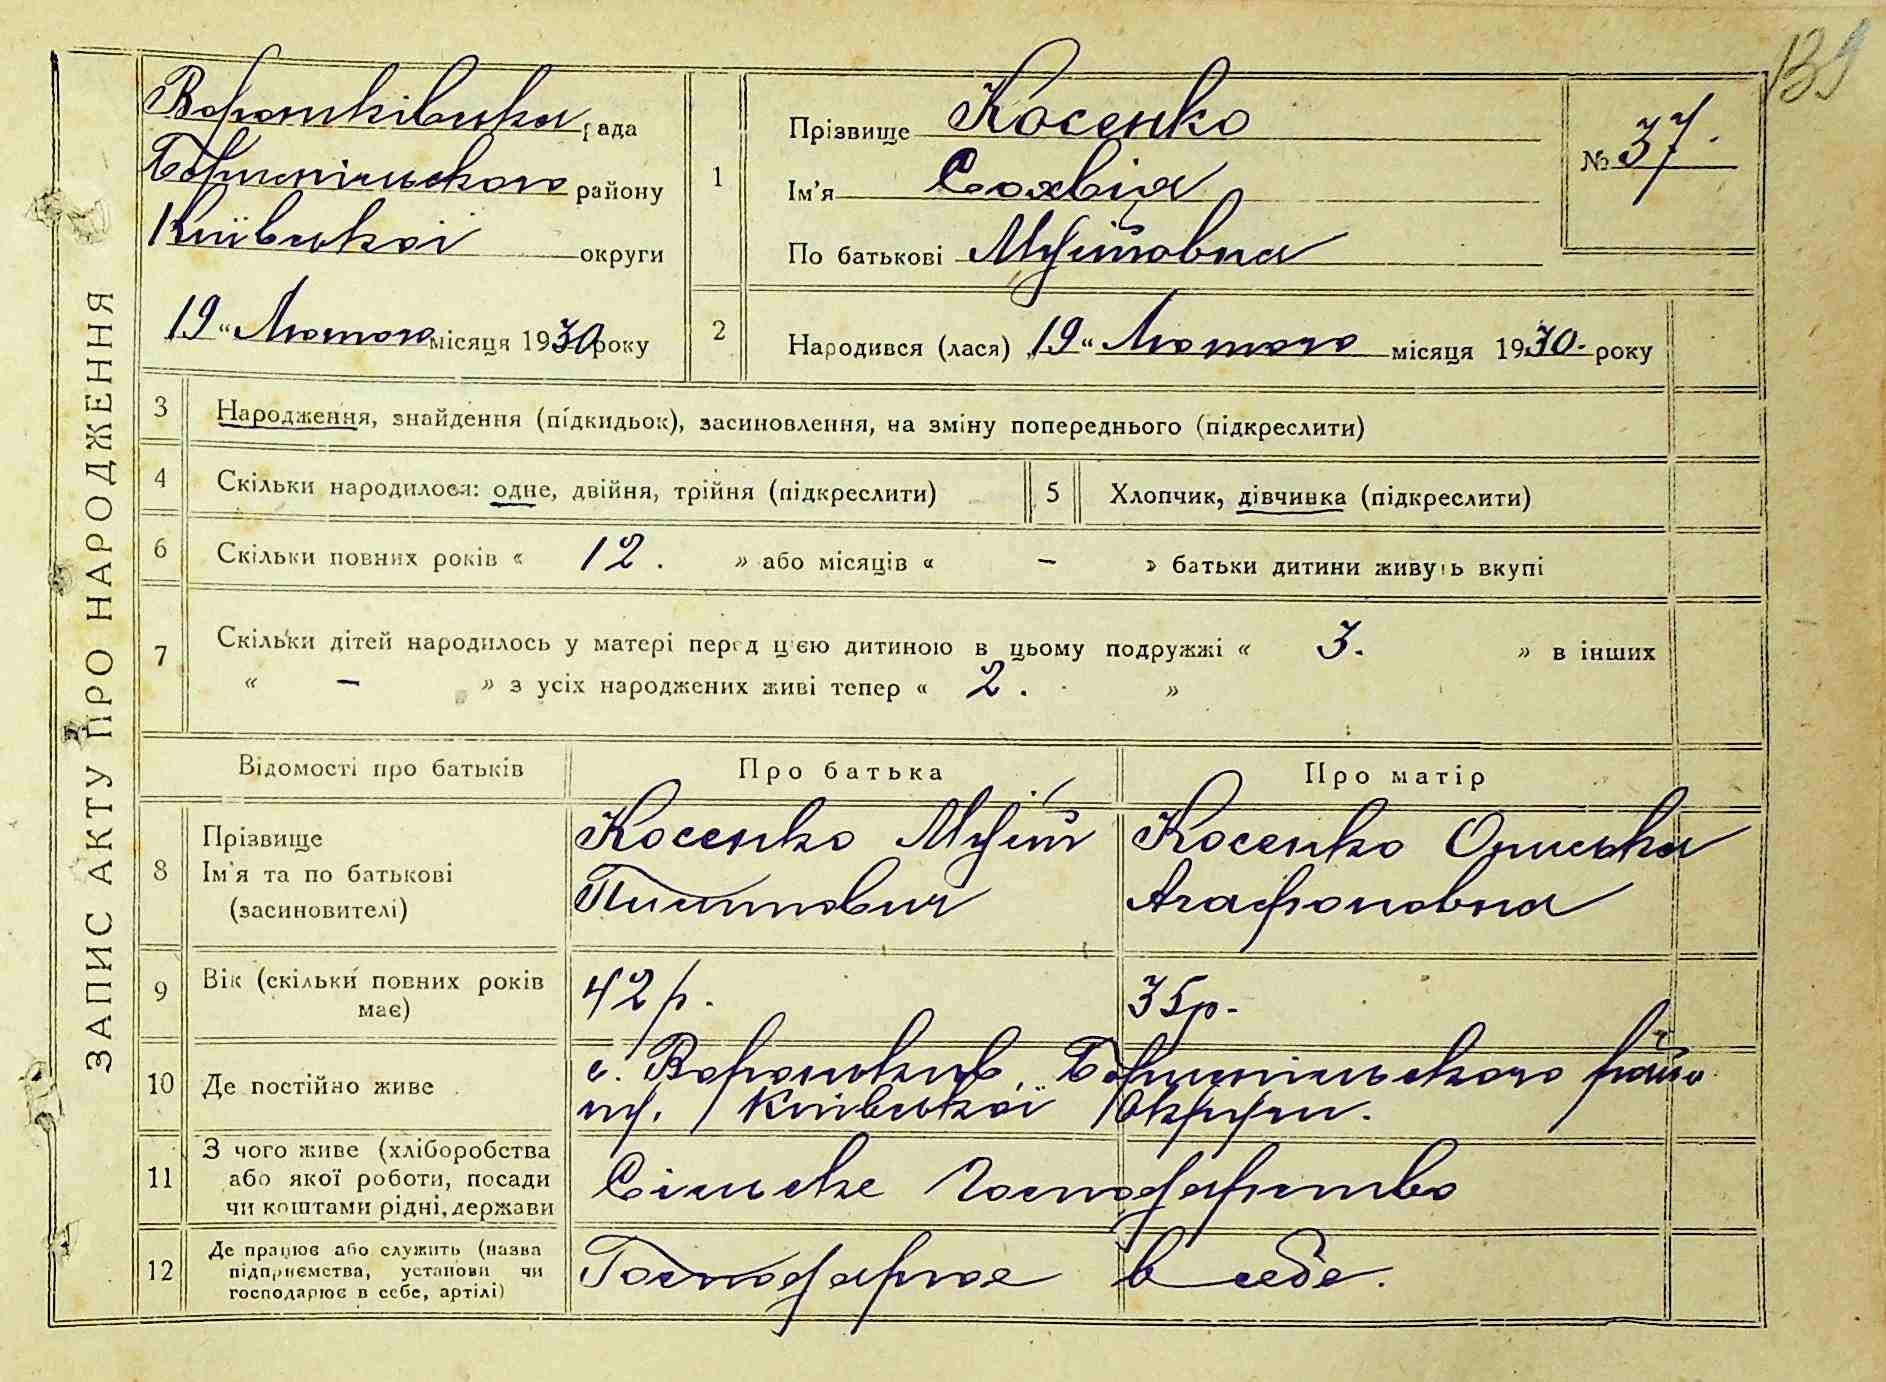 139
ЗАПИС АКТУ ПРО НАРОДЖЕННЯ
Вороньківська рада
Бориспільського району
Київської округи
19 „ Лютого місяця 1930 року
1
Прізвище Косенко
Ім’я Сохвія
По батькові
№ 37.
2
Народився (лася) „19“ Лютого місяця 1930. року
3 Народження, знайдення (підкидьок), засиновлення, на зміну попереднього (підкреслити)
4 Скільки народилося: одне, двійня, трійня (підкреслити)
5 Хлопчик, дівчинка (підкреслити)
6 Скільки повних років « 12. » або місяців « – » батьки дитини живуть вкупі
7 Скільки дітей народилось у матері перед цією дитиною в цьому подружжі « 3. » в інших
« – » з усіх народжених живі тепер « 2. »
Відомості про батьків
Про батька
Про матір
8
Прізвище
Ім’я та по батькові
(засиновителі)
Косенко
Косенко Ориська
Агафоновна
9
Вік (скільки повних років
має)
42 р.
35 р.
10 Де постійно живе
с. Вороньків, Бориспільського райо
ну. Київської Округи.
11
З чого живе (хліборобства
або якої роботи, посади
чи коштами рідні, держави
Сільське Господарство
12
Де працює або служить (назва
підприємства, установи чи
господарює в себе, артілі)
Господарює в себе.